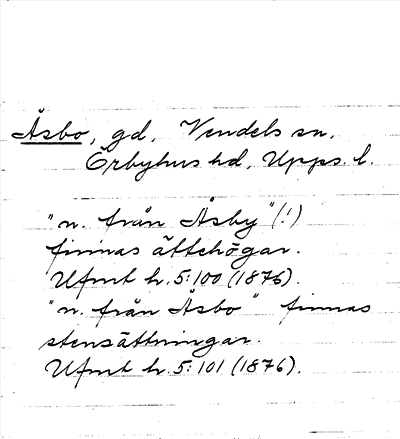 Åsbo, gd, Vendels sn,
Örbyhus hd, Upps. l.
"n. från Åsby" (!)
finnas ättehögar.
Ufmt h. 5:100 (1876).
"n. från Åsbo" finnas
stensättningar.
Ufmt h. 5:101 (1876).